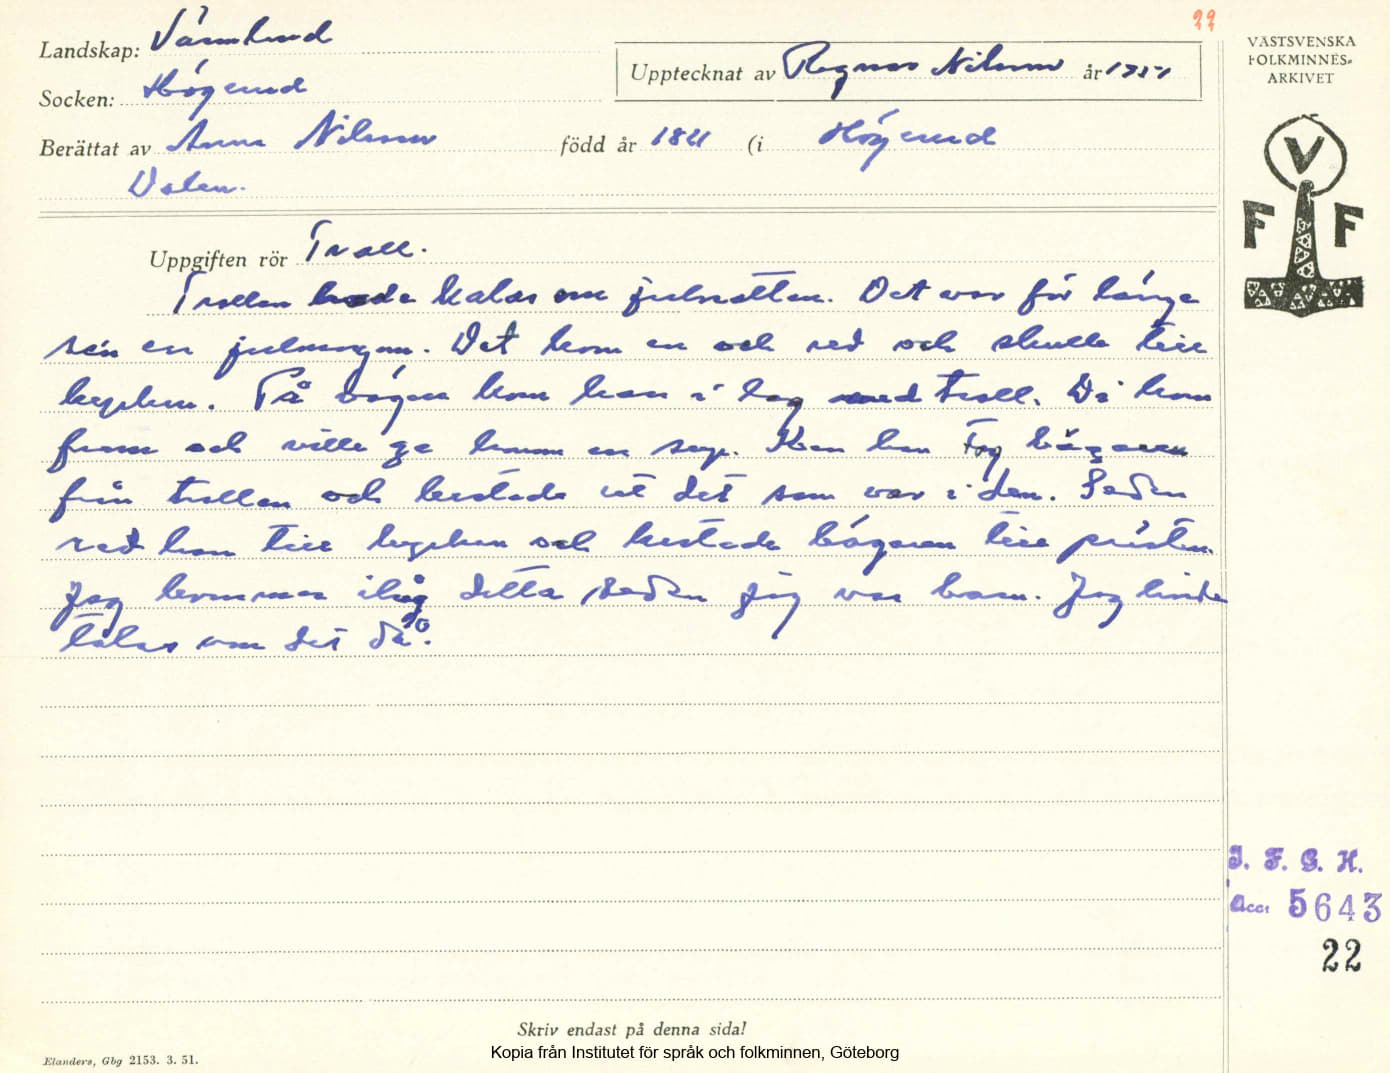 22
Landskap: Värmland
Socken: Högerud
Upptecknat av Ragnar Nilsson år 1951
Berättat av Anna Nilsson född år (i Högerud
Dalen.
VÄSTSVENSKA
FOLKMINNES-
ARKIVET
V
F F
Uppgiften rör Troll.
Trollen hade kalas om julnatten. Det var för länge
sén en julmorgon. Det kom en och red och skulle till
kyrkan. På vägen kom han i lag med troll. De kom
fram och ville ge honom en sup. Men han tog bägaren
från trollen och kastade ut det som var i den. Sedan
red han till kyrkan och kastade bägaren till prästen.
Jag kommer ihåg detta sedan jag var barn. Jag hörde
talas om det då.
I. F. G. H.
Acc: 5643
22
Skriv endast på denna sida!
Kopia från Institutet för språk och folkminnen, Göteborg
Elanders, Gbg 2153. 3. 51.